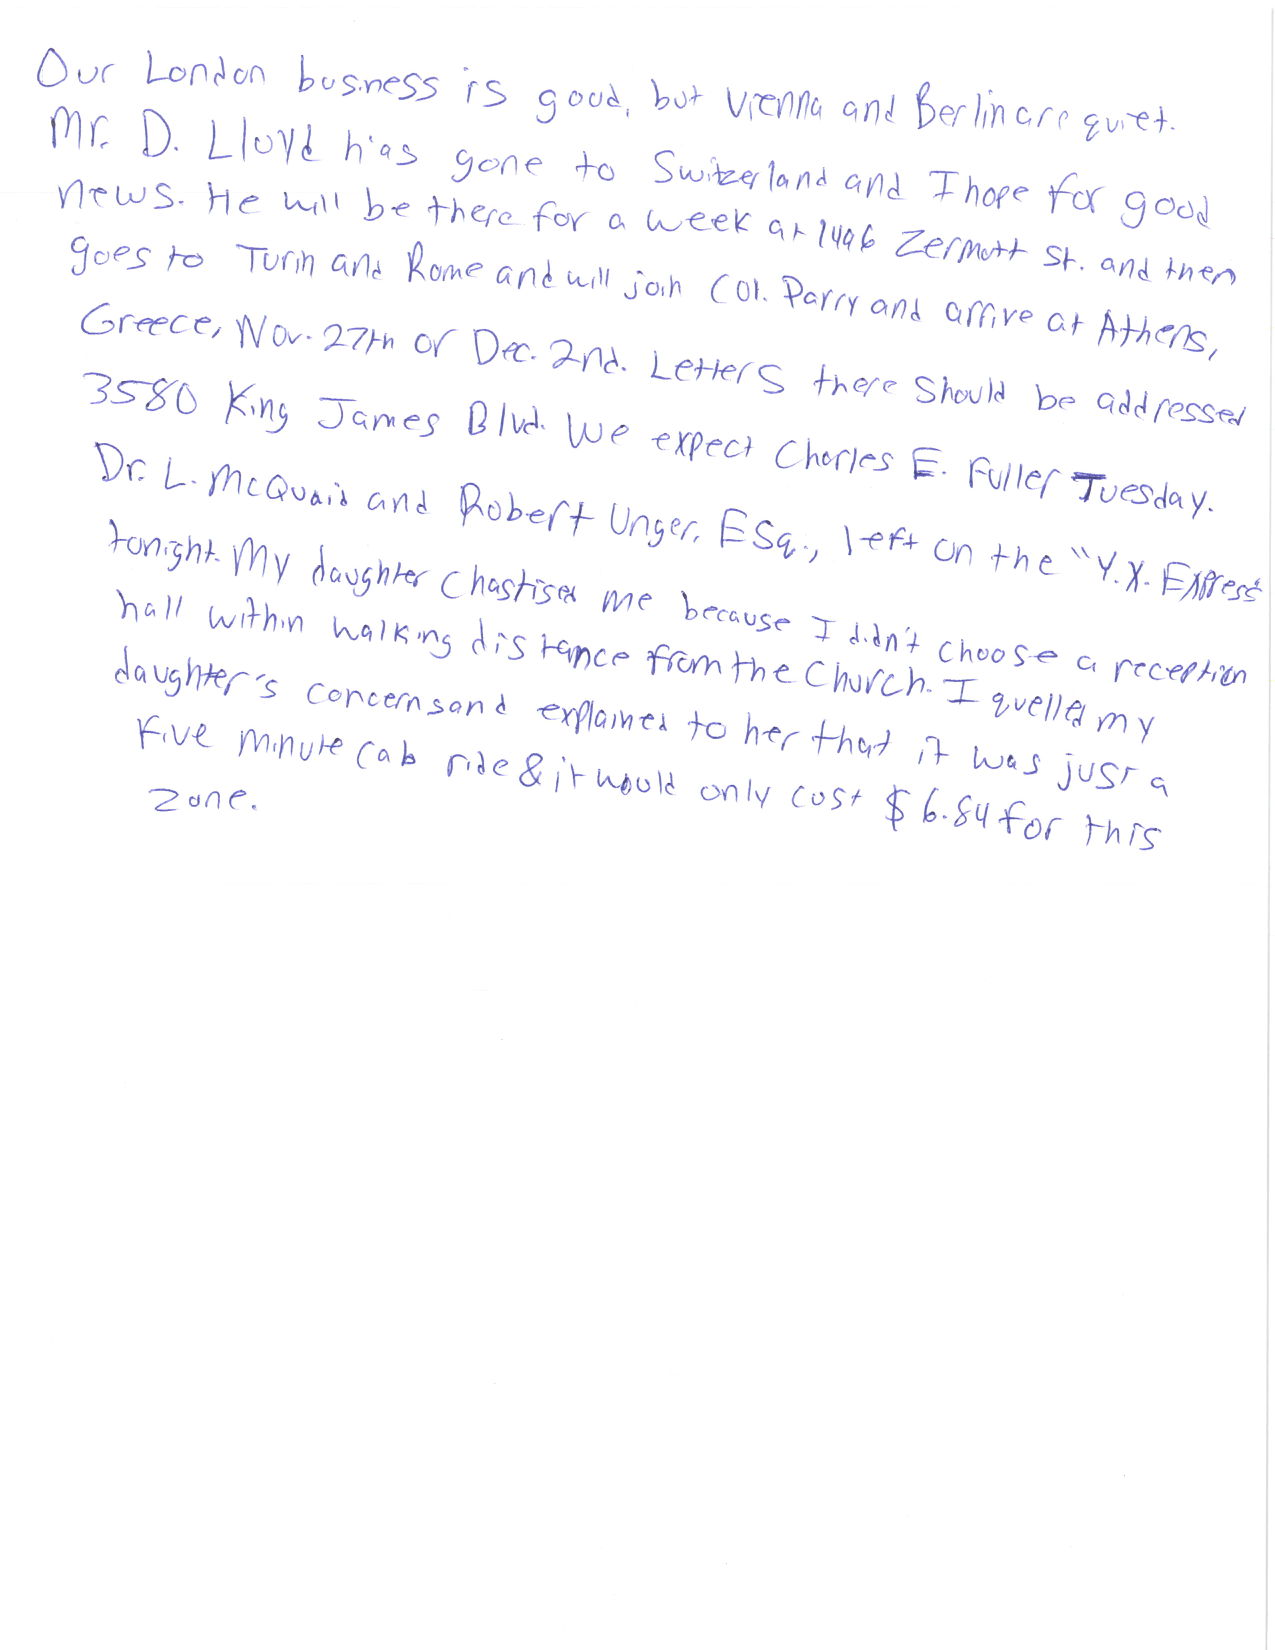 Our London business is good, but Vienna and Berlin are quiet.
Mr. D. Lloyd has gone to Switzerland and I hope for good
news. He will be there for a week at 1496 Zermott St. and then
goes to Turin and Rome and will join Col. Parry and arrive at Athens,
Greece, Nov. 27th or Dec. 2nd. Letters there should be addressed
3580 King James Blvd. We expect Charles E. Fuller Tuesday.
Dr. L. McQuaid and Robert Unger, Esq., left on the "Y.X. Express"
tonight. My daughter chastised me because I didn't choose a reception
hall within walking distance from the church. I quelled my
daughter's concerns and explained to her that it was just a
five minute cab ride & it would only cost $6.84 for this
zone.